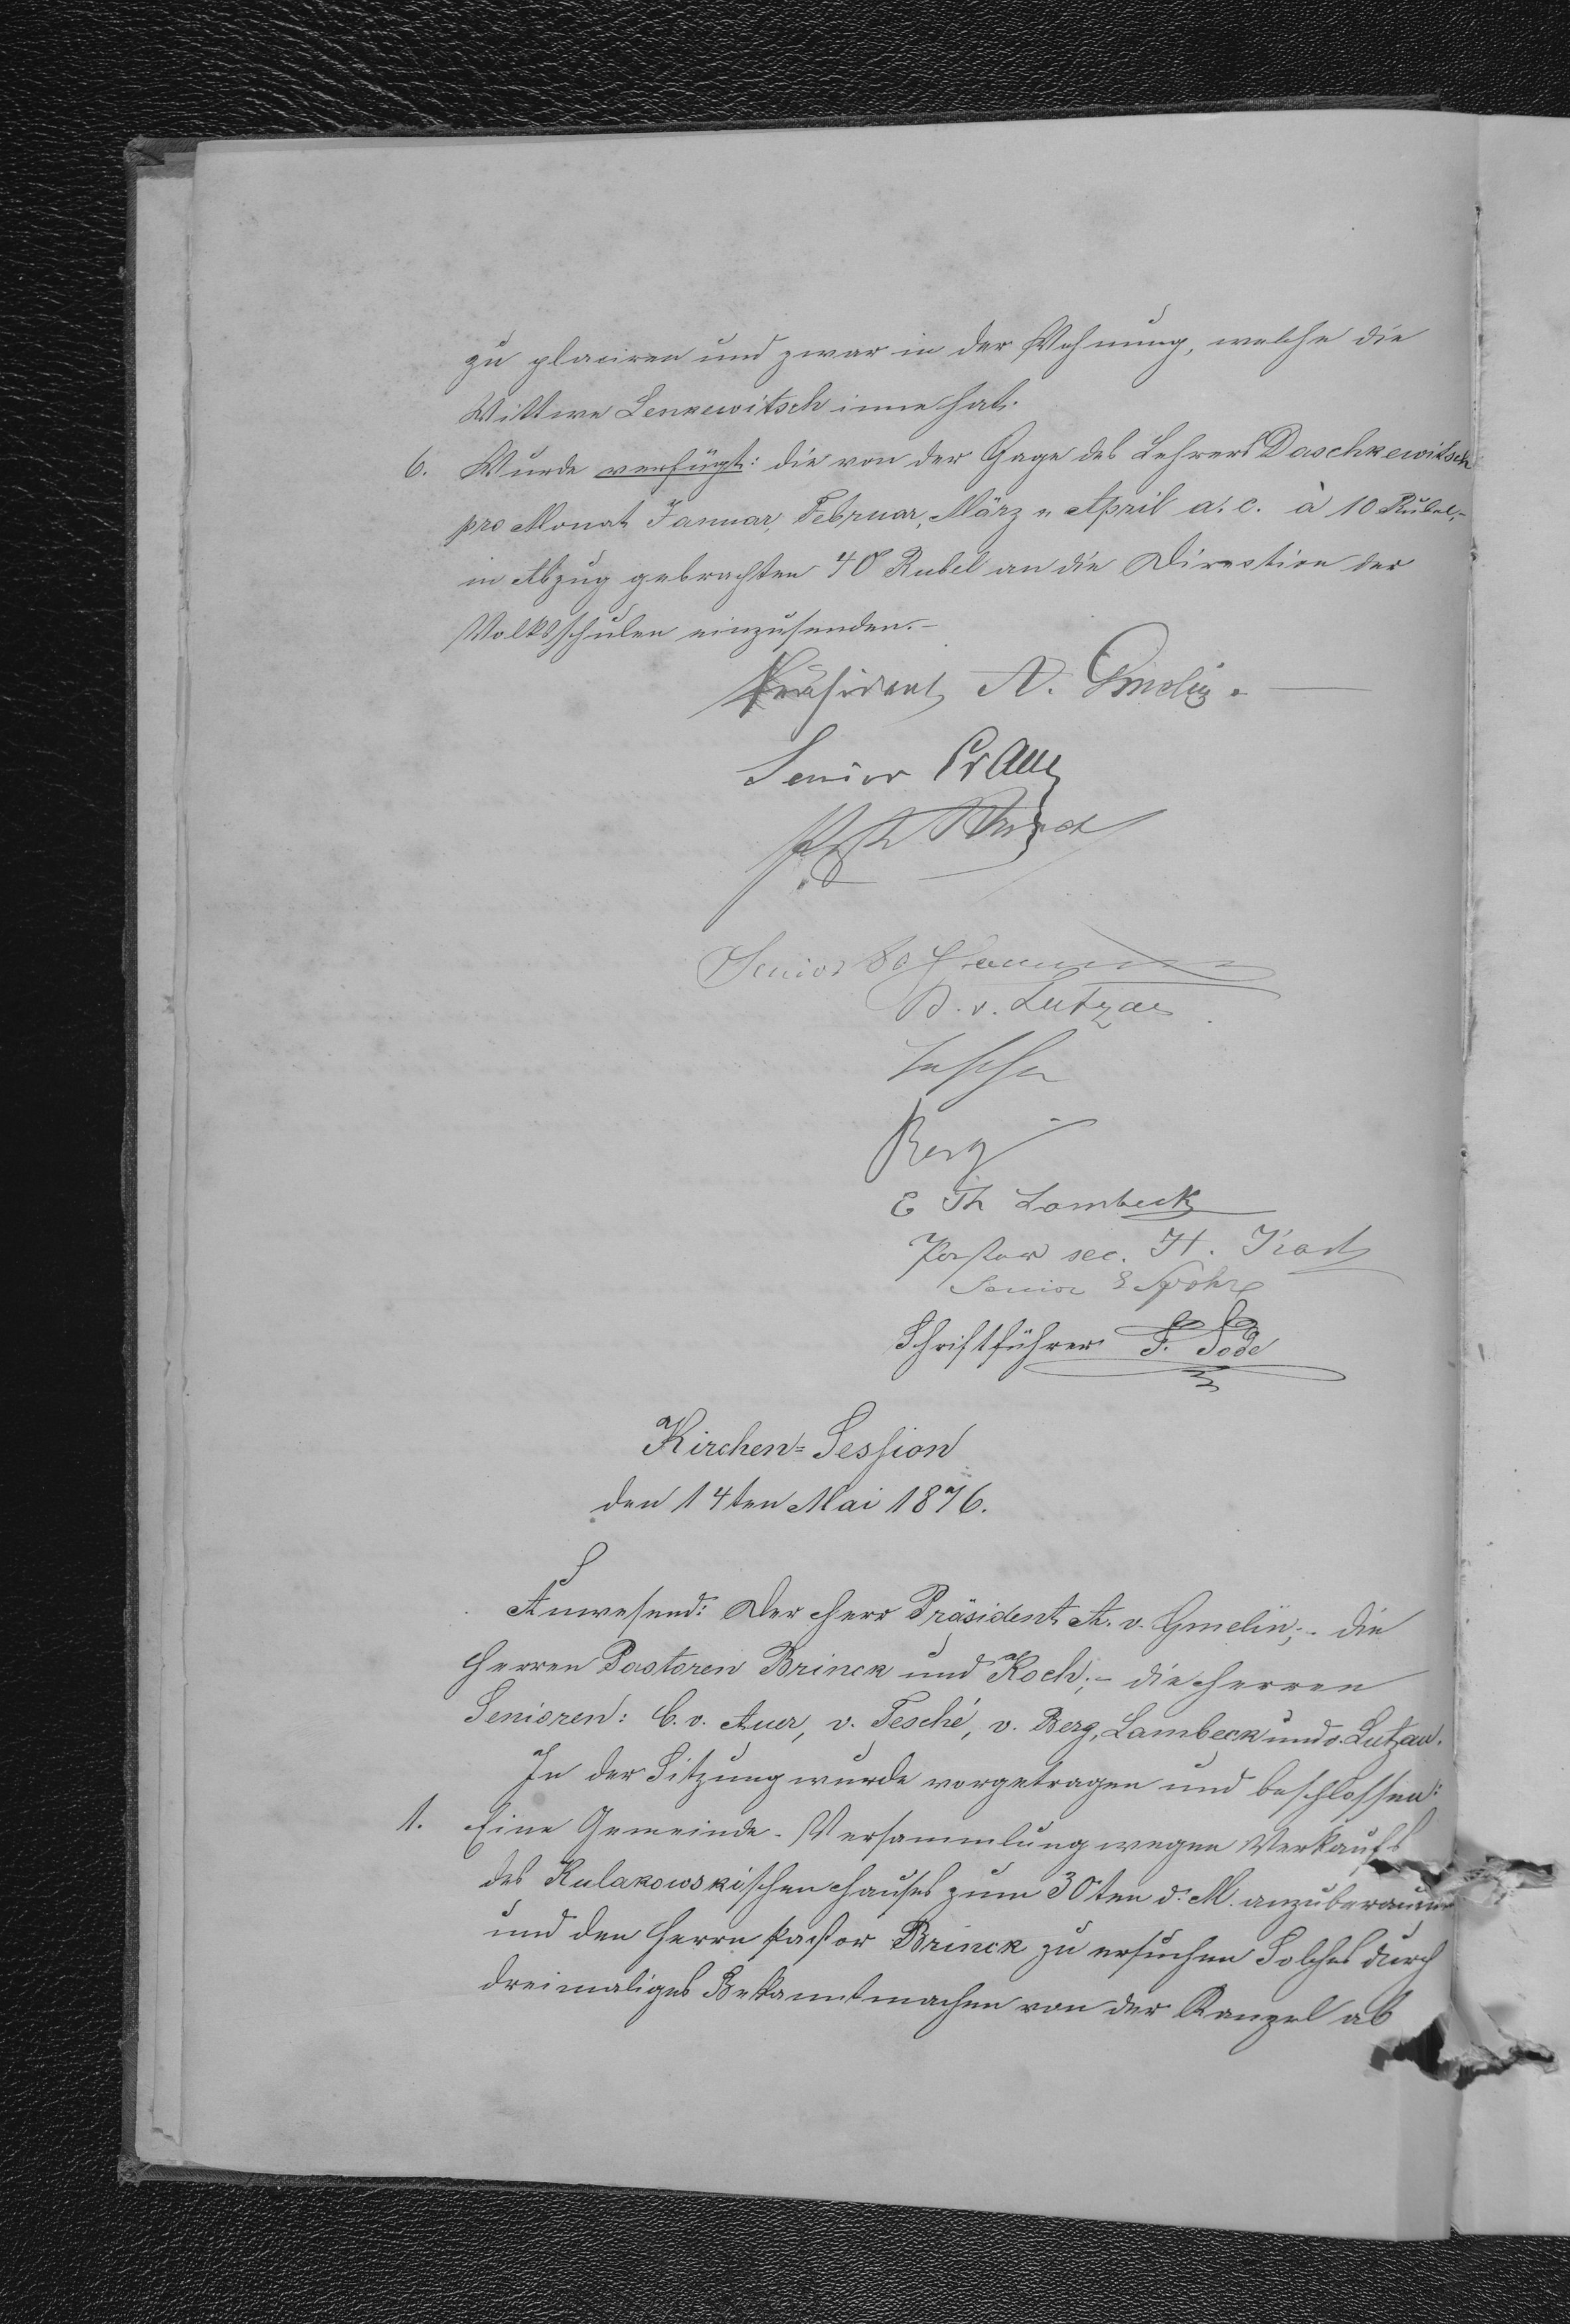 zu placiren und zwar in der Wohnung, welche die
Wittwe Lenkewitsch inne hat.
6. Wurde verfügt: die von der Gage des Lehrers Daschkewitsch
pro Monat Januar, Februar, März u April a. c. à 10 Rubel,-
in Abzug gebrachten 40 Rubel an die Direction der
Volksschulen einzusenden.-
Präsident A. Gmelin.
Senior
Senior
B. v. Lutzau
Tesche
Berg
E Th Lambeck
Pastor sec. H. Koch
Senior E Spohr
Schriftführer F. Bode
Kirchen-Session
den 14ten Mai 1876.
Anwesend: Der Herr Präsident A. v. Gmelin;- die
Herren Pastoren Brinck und Koch;- die Herren
Senioren: C. v. Auer, v. Tesché, v. Berg, Lambeck und v. Lutzau.
In der Sitzung wurde vorgetragen und beschlossen:
1. Eine Gemeinde-Versammlung wegen Verkaufs
des Kulakowskischen Hauses zum 30ten d. M. anzuberaumen
und den Herrn Pastor Brinck zu ersuchen Solches durch
dreimaliges Bekanntmachen von der Kanzel ab